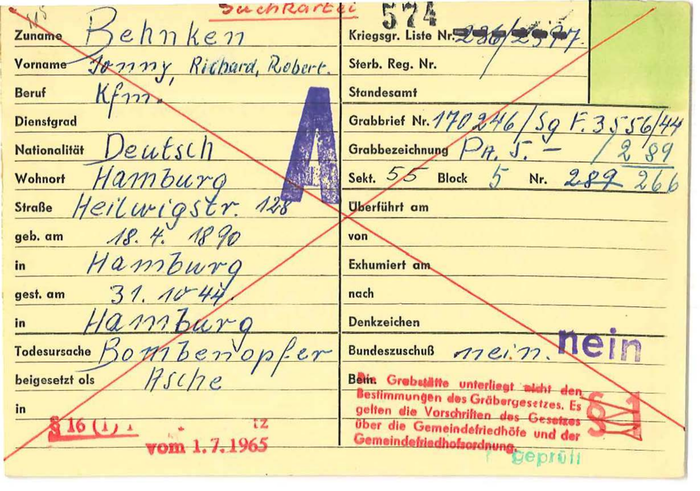 Suchkartei
574
Zuname Behnken
Vorname Jonny, Richard, Robert.
Beruf Kfm.
Dienstgrad
Nationalität Deutsch
Wohnort Hamburg
Straße Heilwigstr. 128
geb. am 18. 4. 1890
in Hamburg
gest. am 31. 10 44.
in Hamburg
Todesursache Bombenopfer
beigesetzt als Asche
in
§ 16 (1)
vom 1.7.1965
A
Kriegsgr. Liste Nr.
Sterb. Reg. Nr.
Standesamt
Grabbrief Nr. 170246/Sg F. 3556/44
Grabbezeichnung PA. 5. – /289
Sekt. 55 Block 5 Nr. 289 266
Überführt am
von
Exhumiert am
nach
Denkzeichen
Bundeszuschuß nein. nein
Bem.
Die Grabstätte unterliegt nicht den
Bestimmungen des Gräbergesetzes. Es
gelten die Vorschriften des Gesetzes
über die Gemeindefriedhöfe und der
Gemeindefriedhofsordnung.
geprüft